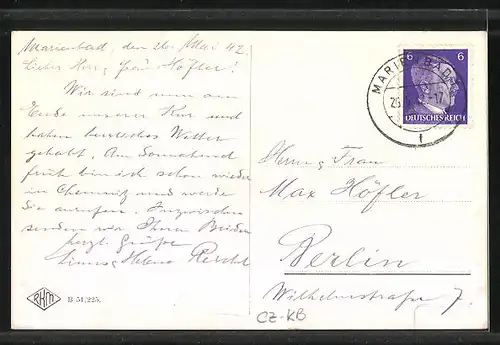 Marienbad, den 26. Mai 42.
Lieber Herr, Frau Höfler!
Wir sind nun am
Ende unserer Kur und
haben herrliches Wetter
gehabt. Am Sonnabend
früh bin ich schon wieder
in Chemnitz und werde
Sie anrufen. Inzwischen
senden wir Ihnen Beiden
herzl. Grüße
Helene
RKM
B 51/225.
6 6
DEUTSCHES REICH
MARIENBAD
1
Herrn u. Frau
Max Höfler
Berlin
Wilhelmstraße 7.
CZ-KB